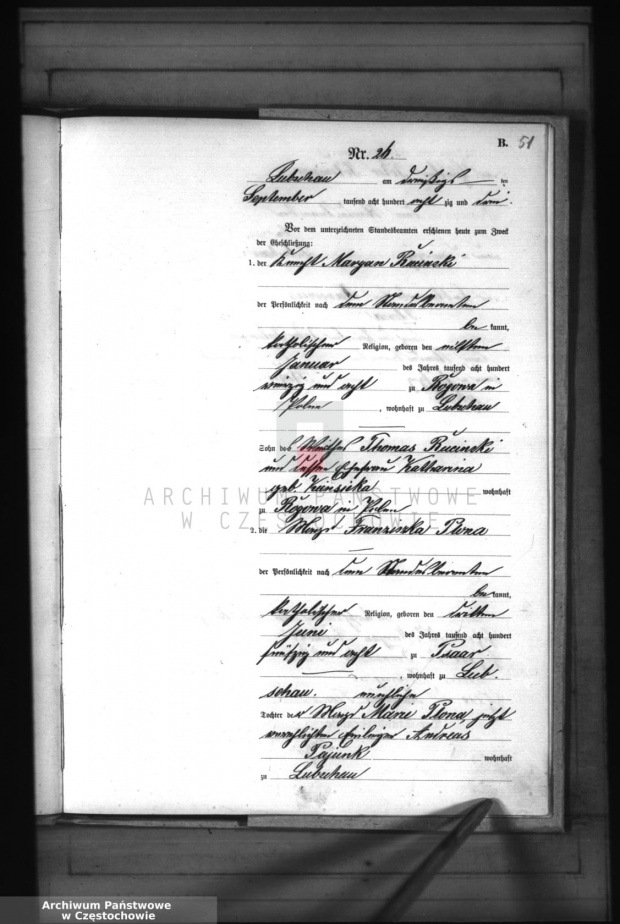 B. 51
Nr. 26.
Lubschau am dreißigsten
September tausend acht hundert achtzig und drei.
Vor dem unterzeichneten Standesbeamten erschienen heute zum Zweck
der Eheschließung:
1. der Knecht Maryan Rucinski
der Persönlichkeit nach dem Standesbeamten
be kannt,
katholischer Religion, geboren den elften
Januar des Jahres tausend acht hundert
vierzig und acht zu Rogowa in
Polen, wohnhaft zu Lubschau
Sohn des Thomas Rucinski
und dessen Ehefrau Katharina
geb. wohnhaft
zu Rogowa in Polen
2. die Magd Franziska Plona
der Persönlichkeit nach dem Standesbeamten
be kannt,
katholischer Religion, geboren den dritten
Juni des Jahres tausend acht hundert
fünfzig und acht zu Psaar
, wohnhaft zu Lub-
schau. uneheliche
Tochter der Magd Marie Plona jetzt
verehelichten Einlieger Andreas
Pajunk wohnhaft
zu Lubschau
ARCHIWUM PAŃSTWOWE
W CZĘSTOCHOWIE
Archiwum Państwowe
w Częstochowie